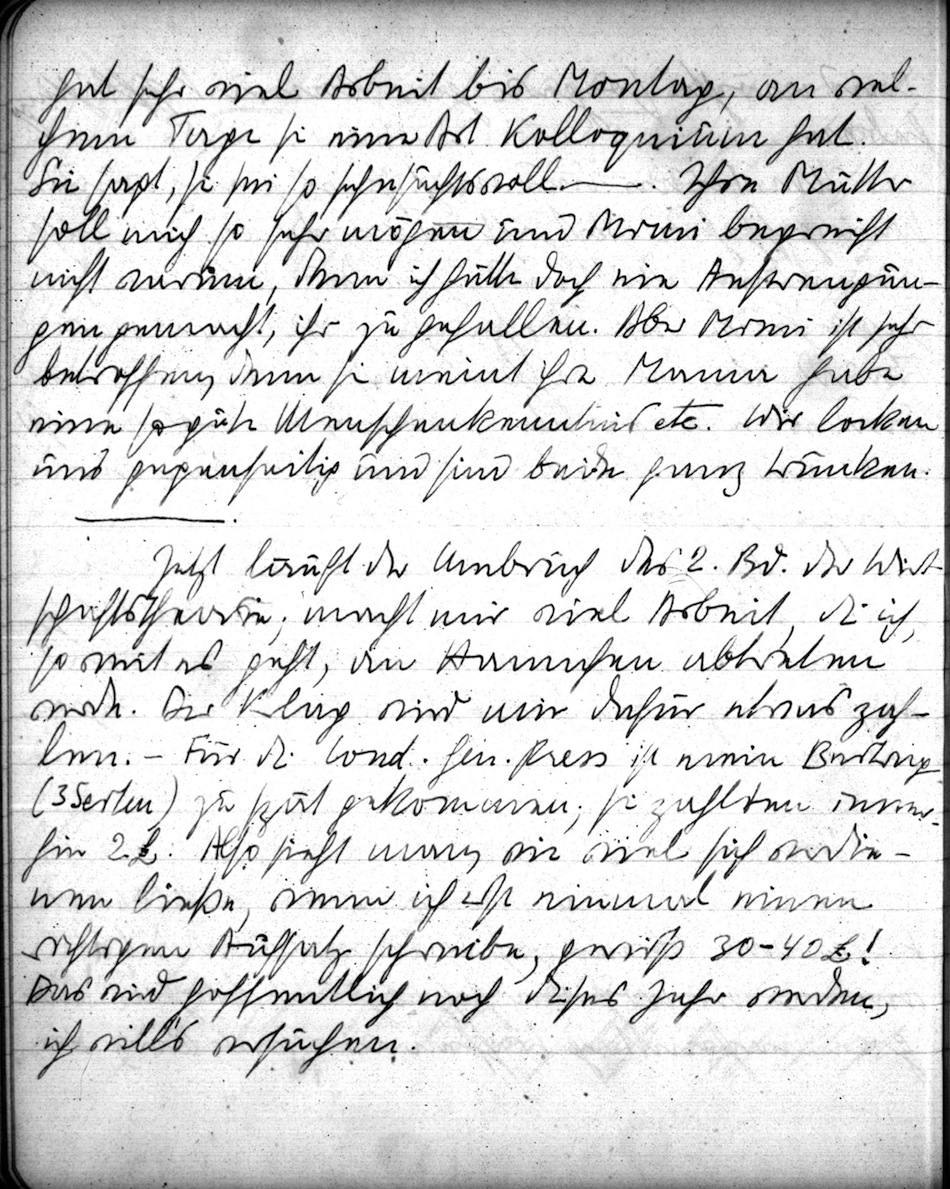 hat sehr viel Arbeit bis Montag, an wel-
chem Tage sie eine Art Kolloquium hat.
Sie sagt, sie sei so sehnsuchtsvoll. —. Ihre Mutter
soll mich so sehr mögen und Mimi begreift
nicht warum, denn ich hätte doch nie Anstrengun-
gen gemacht, ihr zu gefallen. Aber Mimi ist sehr
betroffen, denn sie meint ihre Mama habe
eine so gute Menschenkenntnis etc. Wir locken
uns gegenseitig und sind beide ganz trunken.
Jetzt läuft der Umbruch des 2. Bd. der Wirt-
schaftstheorie; macht mir viel Arbeit, die ich,
so weit es geht, an Hannchen abtreten
werde. Der Verlag wird mir dafür etwas zah-
len. – Für die Lond. Gen. Press ist mein Beitrag
(3 Seiten) zu spät gekommen; sie zahlten immer-
hin 2 £. Also sieht man, wie viel sich verdie-
nen ließe, wenn ich erst einmal einen
richtigen Aufsatz schreibe, gewiß 30-40 £!
Das wird hoffentlich noch dieses Jahr werden,
ich will's versuchen.